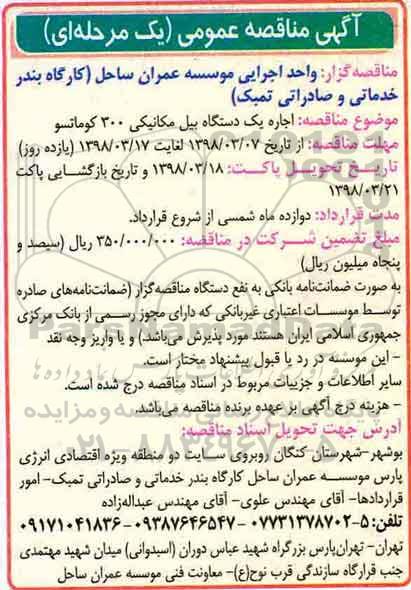 آگهی مناقصه عمومی (یک مرحله‌ای)
مناقصه‌گزار: واحد اجرایی موسسه عمران ساحل (کارگاه بندر
خدماتی و صادراتی تمبک)
موضوع مناقصه: اجاره یک دستگاه بیل مکانیکی ۳۰۰ کوماتسو
مهلت مناقصه: از تاریخ ۱۳۹۸/۰۳/۰۷ لغایت ۱۳۹۸/۰۳/۱۷ (یازده روز)
تاریخ تحویل پاکت: ۱۳۹۸/۰۳/۱۸ و تاریخ بازگشایی پاکت
۱۳۹۸/۰۳/۲۱
مدت قرارداد: دوازده ماه شمسی از شروع قرارداد.
مبلغ تضمین شرکت در مناقصه: ۳۵۰/۰۰۰/۰۰۰ ریال (سیصد و
پنجاه میلیون ریال)
به صورت ضمانت‌نامه بانکی به نفع دستگاه مناقصه‌گزار (ضمانت‌نامه‌های صادره
توسط موسسات اعتباری غیربانکی که دارای مجوز رسمی از بانک مرکزی
جمهوری اسلامی ایران هستند مورد پذیرش می‌باشد) و یا واریز وجه نقد
- این موسسه در رد یا قبول پیشنهاد مختار است.
سایر اطلاعات و جزییات مربوط در اسناد مناقصه درج شده است.
- هزینه درج آگهی بر عهده برنده مناقصه می‌باشد.
آدرس جهت تحویل اسناد مناقصه:
بوشهر-شهرستان کنگان روبروی سایت دو منطقه ویژه اقتصادی انرژی
پارس موسسه عمران ساحل کارگاه بندر خدماتی و صادراتی تمبک- امور
قراردادها- آقای مهندس علوی- آقای مهندس عبداله‌زاده
تلفن: ۵-۰۷۷۳۱۳۷۸۷۰۲ -۰۹۳۸۷۶۴۶۵۴۷ -۰۹۱۷۱۰۴۱۸۳۶
تهران- تهران‌پارس بزرگراه شهید عباس دوران (اسبدوانی) میدان شهید مهتمدی
جنب قرارگاه سازندگی قرب نوح(ع)- معاونت فنی موسسه عمران ساحل